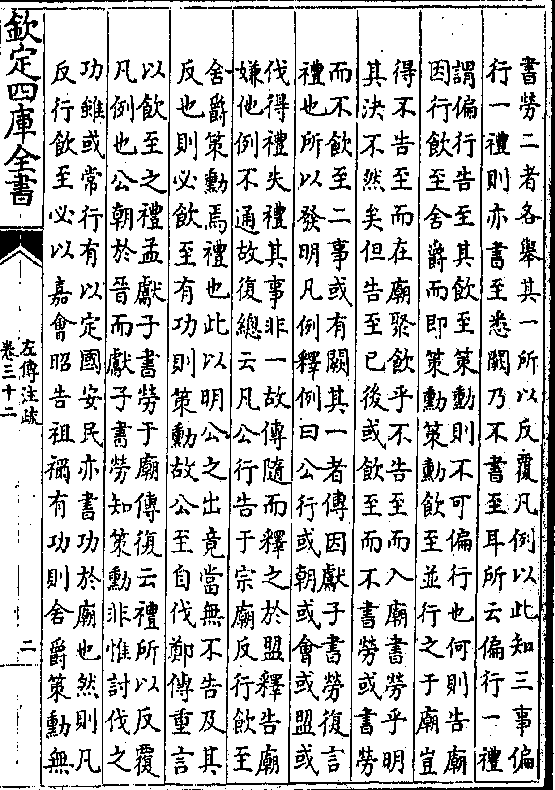 書勞二者各舉其一所以反覆凡例以此知三事偏
行一禮則亦書至悉闕乃不書至耳所云偏行一禮
謂偏行告至其飲至策勳則不可偏行也何則告廟
因行飲至舍爵而即策勳策勳飲至並行之于廟豈
得不告至而在廟聚飲乎不告至而入廟書勞乎明
其決不然矣但告至已後或飲至而不書勞或書勞
而不飲至二事或有闕其一者傳因獻子書勞復言
禮也所以發明凡例釋例曰公行或朝或會或盟或
伐得禮失禮其事非一故傳隨而釋之於盟釋告廟
嫌他例不通故復總云凡公行告于宗廟反行飲至
舍爵策勳焉禮也此以明公之出竟當無不告及其
反也則必飲至有功則策勳故公至自伐鄭傳重言
以飲至之禮孟獻子書勞于廟傳復云禮所以反覆
凡例也公朝於晉而獻子書勞知策勳非惟討伐之
功雖或常行有以定國安民亦書功於廟也然則凡
反行飲至必以嘉會昭告祖禰有功則舍爵策勳無
欽定四庫全書
左傳注疏
卷三十二
二